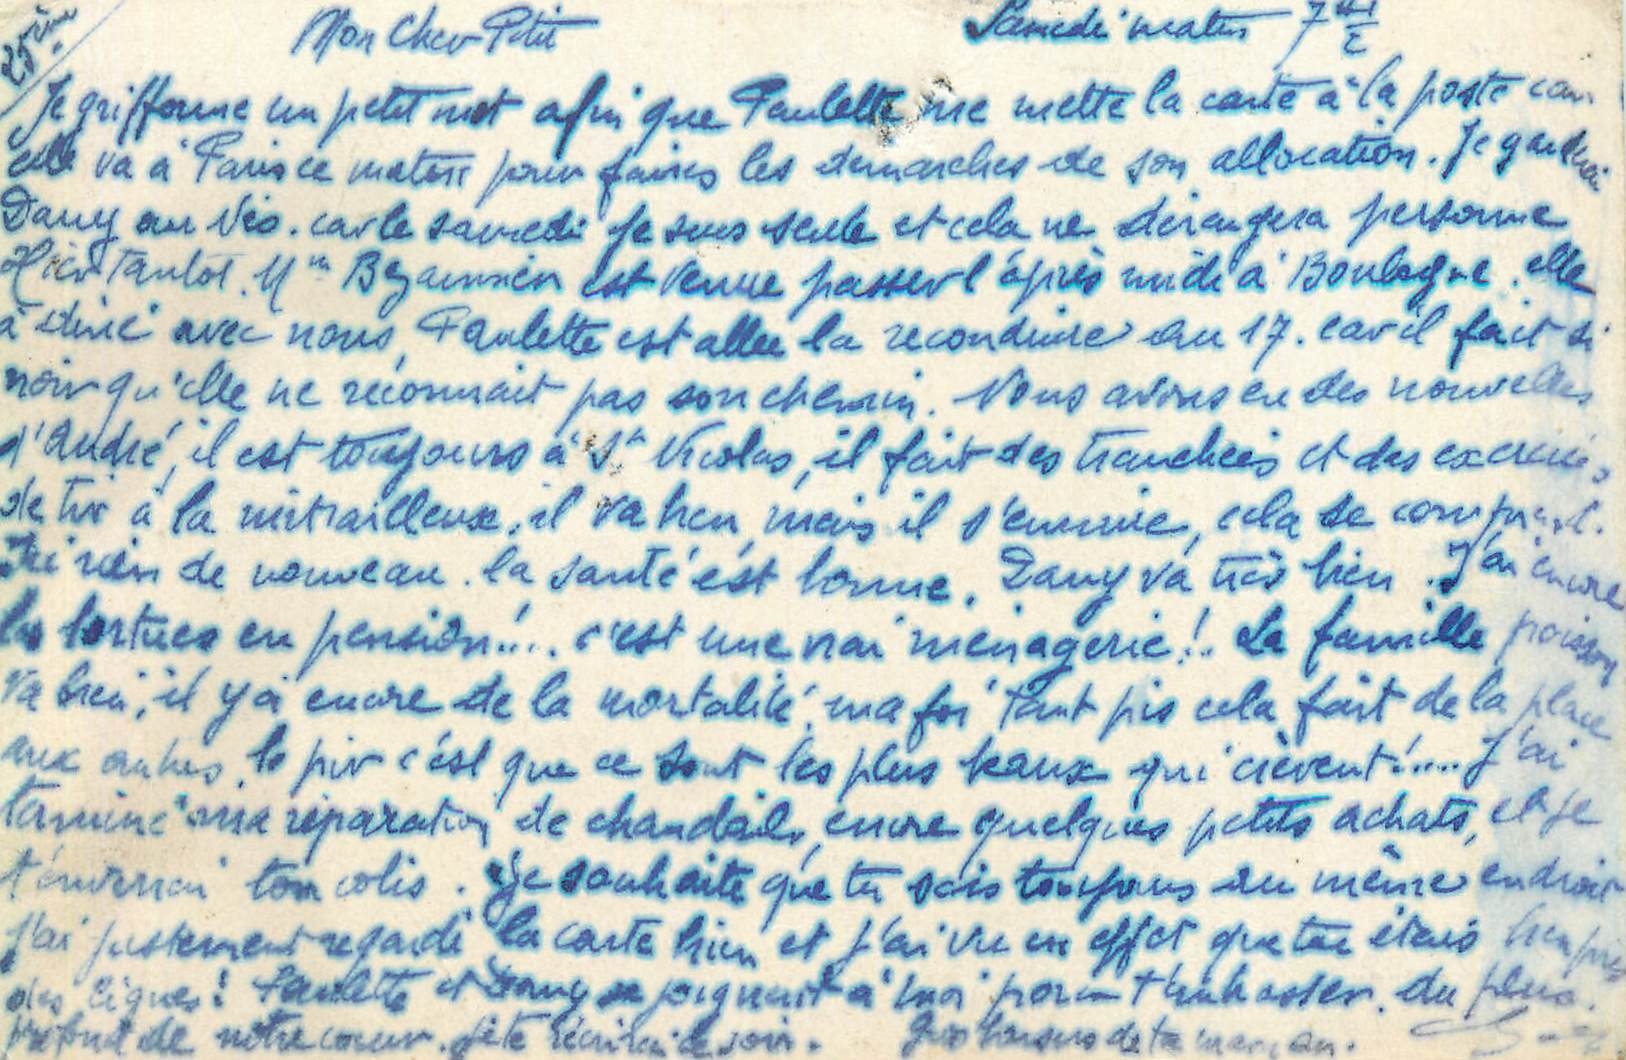 25ème
Mon Cher Petit Samedi matin 7 H 1/2
Je griffonne un petit mot afin que Paulette me mette la carte à la poste car
elle va à Paris ce matin pour faires les demarches de son allocation. Je garderai
Dany au car le samedi je suis seule et cela ne dérangera personne
Hier Tantot. Mme est venue passer l'après midi à Boulogne. elle
à diné avec nous, Paulette est allée la reconduire au 17. car il fait si
noir qu'elle ne réconnait pas son chemin. Nous avons eu des nouvelles
d'André, il est toujours à St Nicolas, il fait des tranchées et des exercices
de tir à la mitrailleuse, il va bien, mais il s'ennuie, cela se comprend.
Ici rien de nouveau. la santé est bonne. Dany va très bien. J'ai encore
les tortues en pension!... c'est une vrai ménagerie!.. La famille poisson
va bien, il y a encore de la mortalité, ma foi tant pis cela fait de la place
aux autres, le pir c'est que ce sont les plus beaux qui crèvent!.... J'ai
terminé ma réparation de chandail, encore quelques petits achats, et je
t'enverrai ton colis. Je souhaite que tu sois toujours au même endroit
j'ai justement regardé la carte hier et j'ai vu en effet que tu étais bien près
des lignes! Paulette et Dany se joignent à moi pour t'embrasser du plus
profond de notre coeur. je te écrirai ce soir. Gros baisers de ta maman.